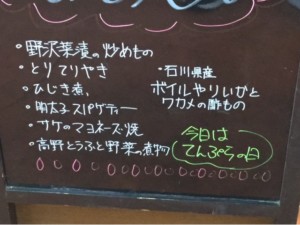 ・野沢菜漬の炒めもの
・とりてりやき
・ひじき煮、
・明太子スパゲティー
・サケのマヨネーズ焼
・高野とうふと野菜の煮物
・石川県産
ボイルやりいかと
ワカメの酢もの
今日は
てんぷらの日